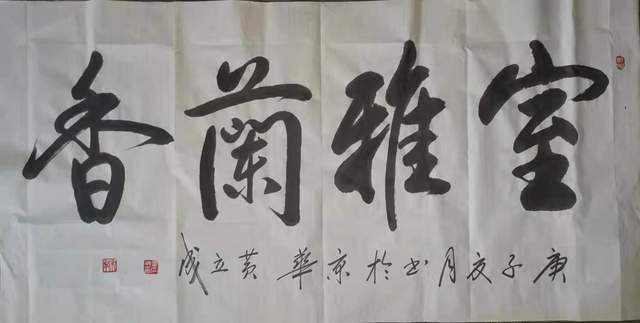 室雅蘭香
庚子夏月书於京華黄立成